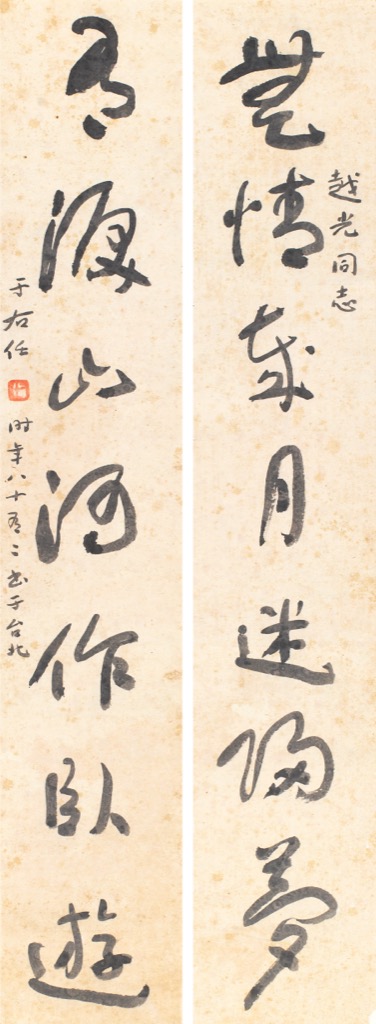 越光同志
無情歲月迷歸夢
有淚山河作臥遊
于右任
時年八十有二書于台北